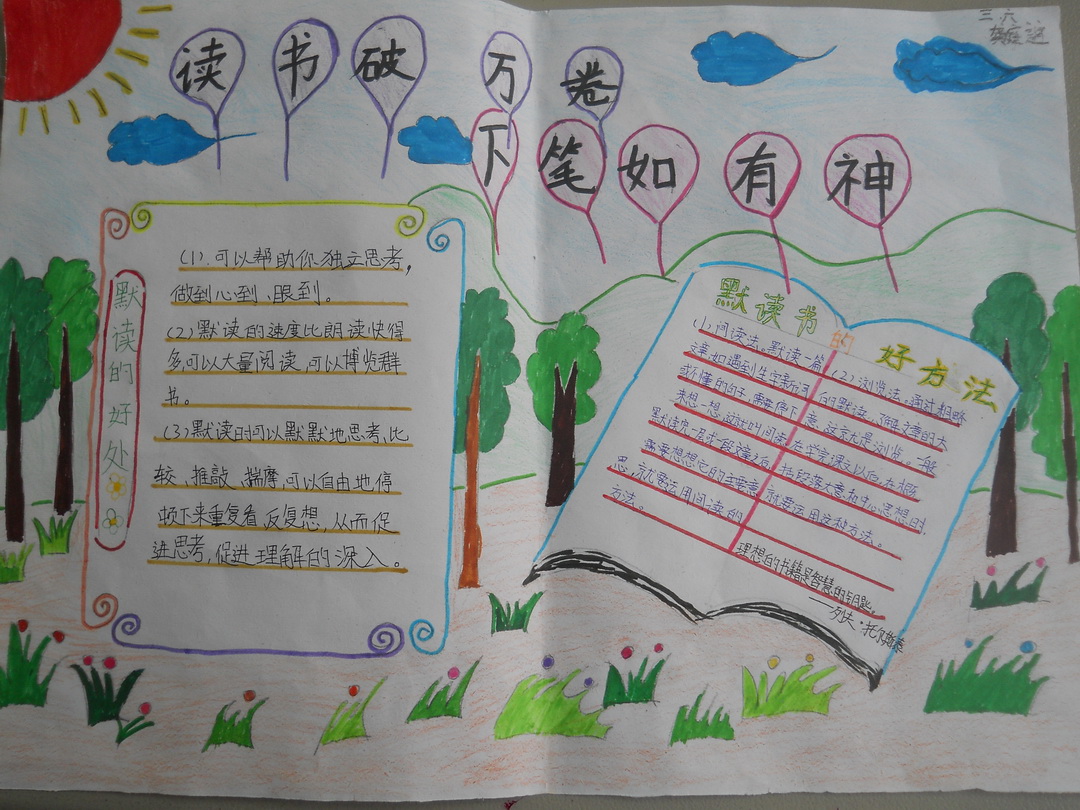 三、六
读书破万卷
下笔如有神
默读的好处
(1).可以帮助你独立思考,
做到心到、眼到。
(2)默读的速度比朗读快得
多,可以大量阅读,可以博览群
书。
(3)默读时可以默默地思考,比
较、推敲、揣摩,可以自由地停
顿下来重复看,反复想,从而促
进思考,促进理解的深入。
默读书的好方法
(1)间读法。默读一篇
文章,如遇到生字新词
或不懂的句子,需要停下
来想一想,这就叫间读,
默读完一层或一段文章后,
需要想想它的主要意
思,就要运用间读的
方法。
(2)浏览法。通过粗略
的默读,了解文章的大
意,这就是浏览。一般
在学完课文以后,在概
括段落大意和中心思想时,
就要运用这种方法。
理想的书籍是智慧的钥匙。
——列夫·托尔斯泰